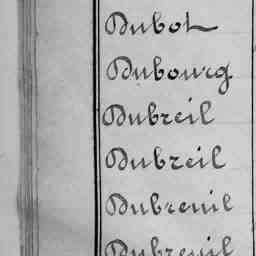 Dubot
Dubourg
Dubreil
Dubreil
Dubreuil
Dubreuil